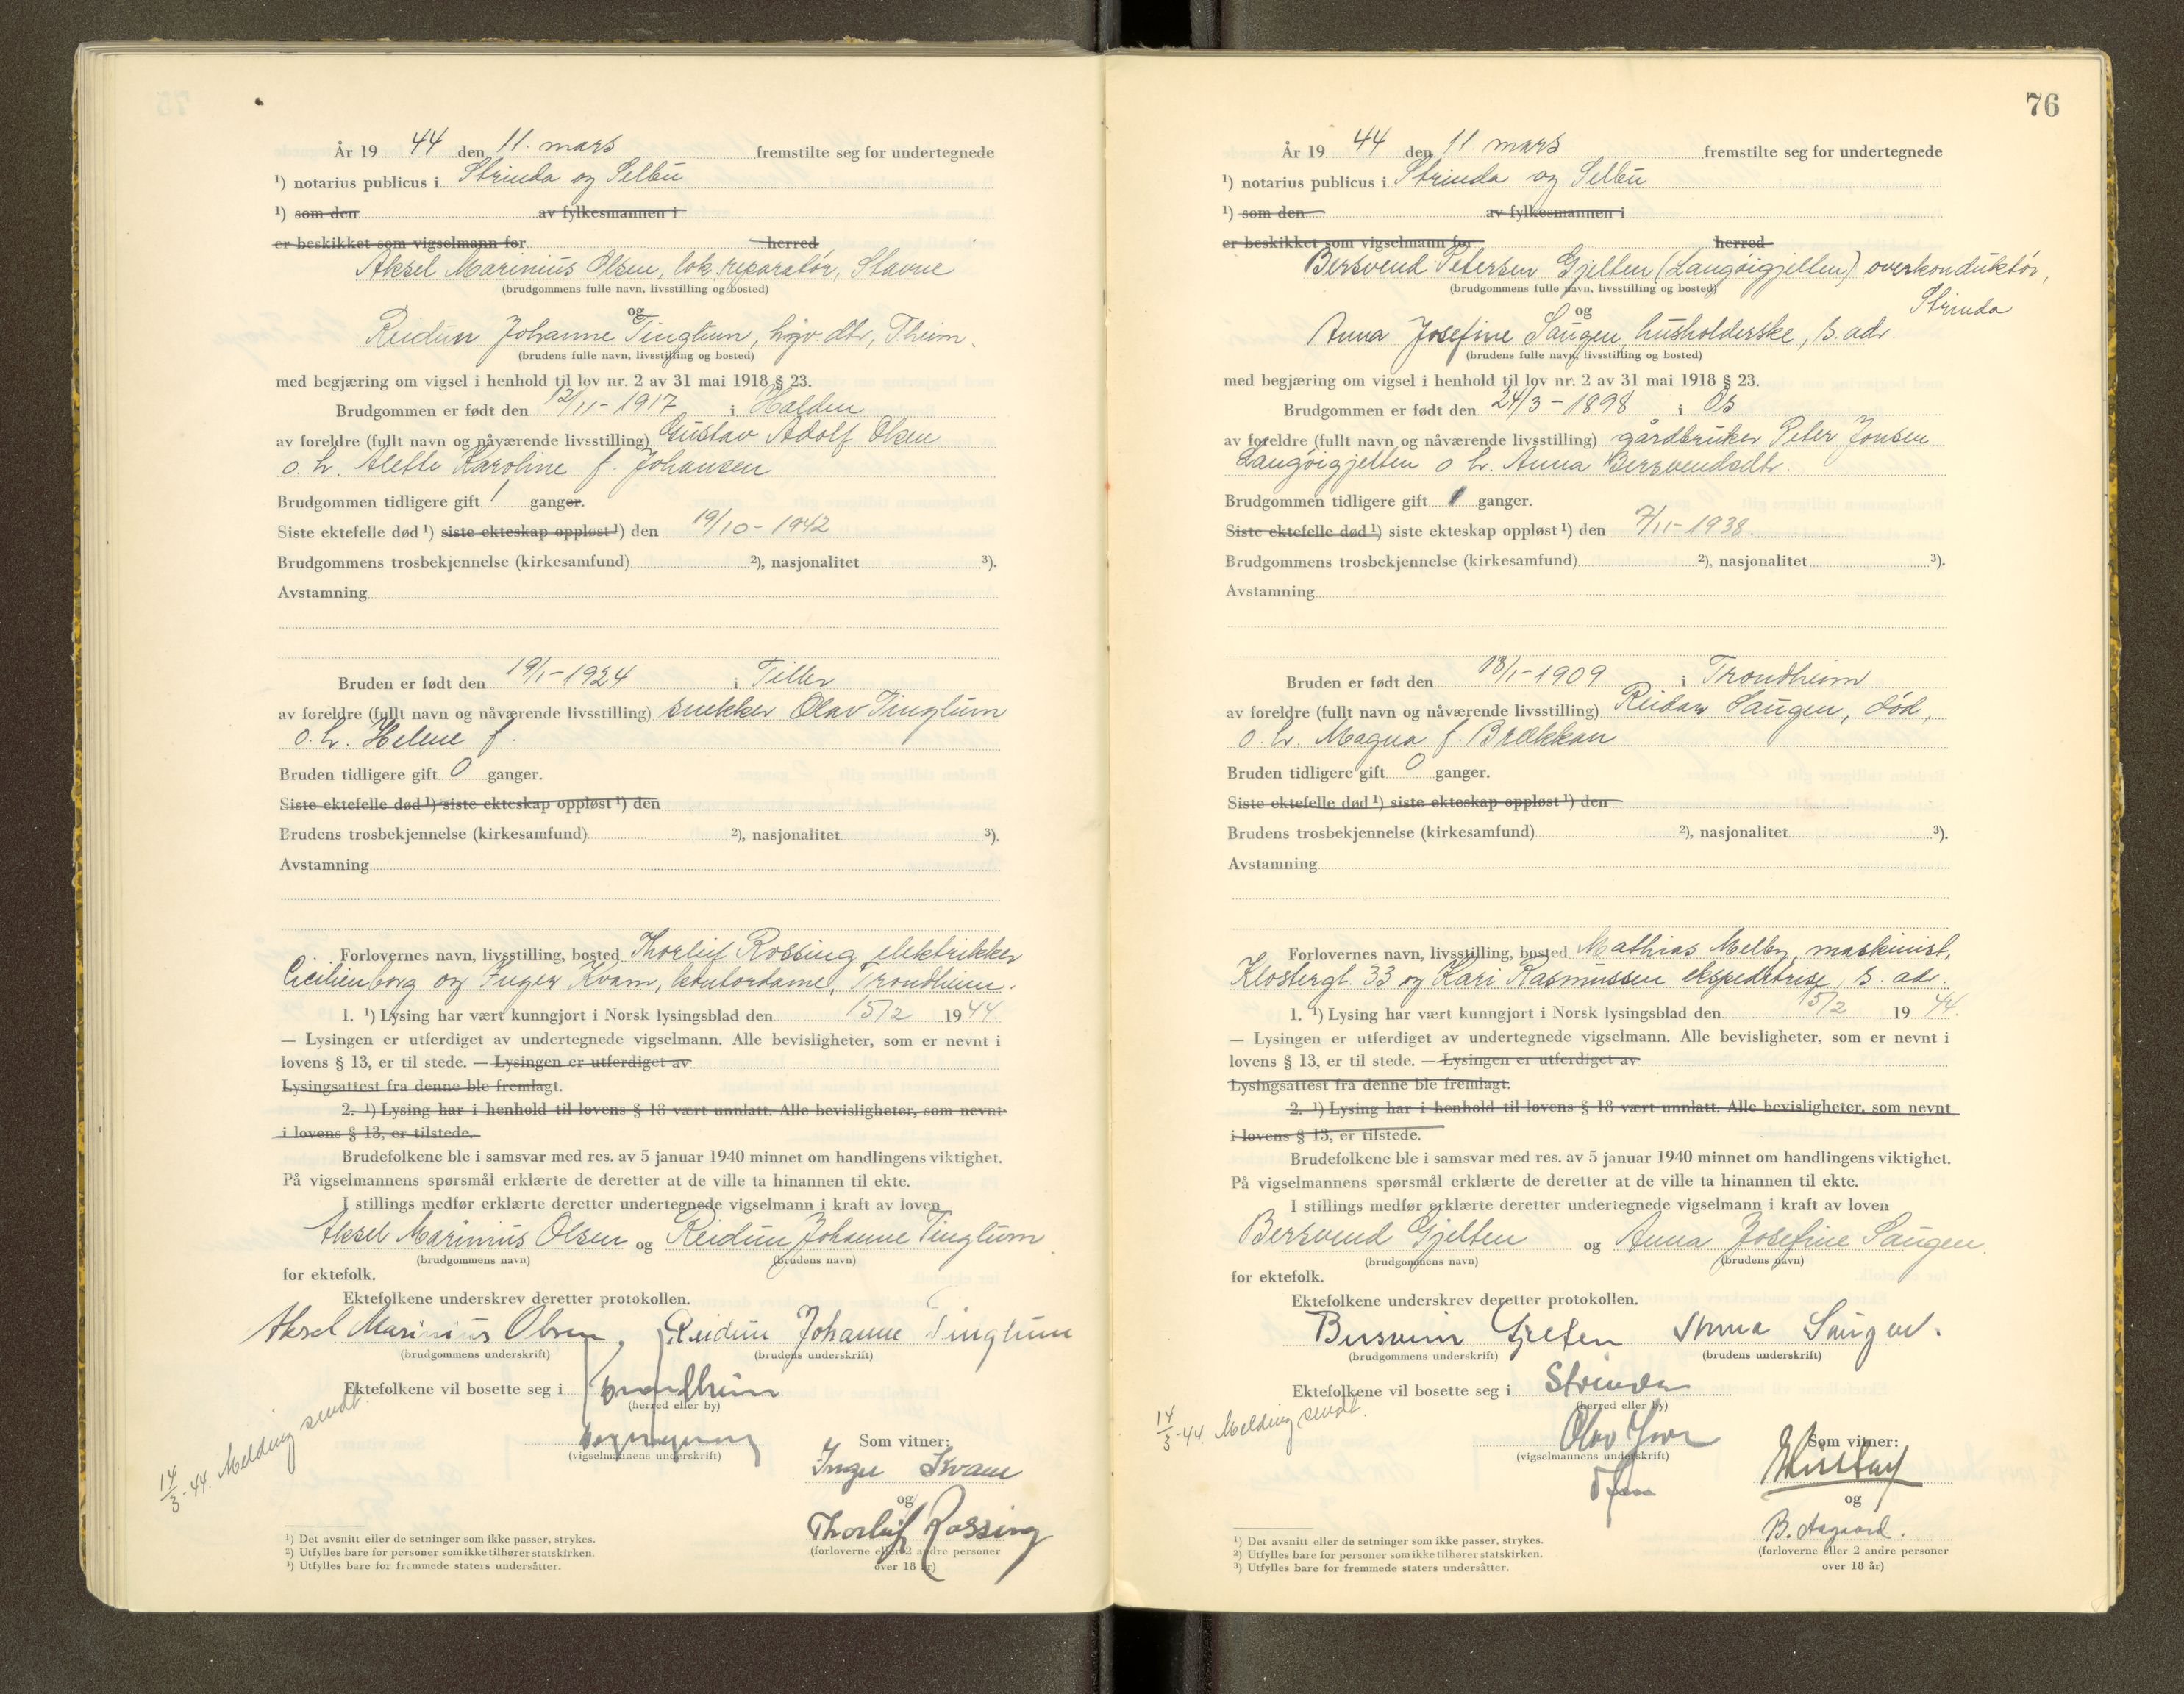 År 19 44 den 11. mars fremstilte seg for undertegnede
¹) notarius publicus i Strinda og Selbu
¹) som den av fylkesmannen i
er beskikket som vigselmann for herred
Aksel Marinius Olsen, lok.reparatør, Stavne
(brudgommens fulle navn, livsstilling og bosted)
og
Reidun Johanne Tinglum, hgv. dtr, T.heim.
(brudens fulle navn, livsstilling og bosted)
med begjæring om vigsel i henhold til lov nr. 2 av 31 mai 1918 § 23.
Brudgommen er født den 12/11-1917 i Halden
av foreldre (fullt navn og nåværende livsstilling) Gustav Adolf Olsen
o. h. Alette Karoline f. Johansen
Brudgommen tidligere gift 1 ganger.
Siste ektefelle død ¹) siste ekteskap oppløst ¹) den 19/10-1942
Brudgommens trosbekjennelse (kirkesamfund) ²), nasjonalitet ³).
Avstamning
Bruden er født den 19/1-1924 i Tiller
av foreldre (fullt navn og nåværende livsstilling) snekker Olav Tinglum
o. h. Helene f.
Bruden tidligere gift 0 ganger.
Siste ektefelle død ¹) siste ekteskap oppløst ¹) den
Brudens trosbekjennelse (kirkesamfund) ²), nasjonalitet ³).
Avstamning
Forlovernes navn, livsstilling, bosted Thorleif Rossing elektrikker
Cicilienborg og Inger Kvam, kontordame, Trondheim.
1. ¹) Lysing har vært kunngjort i Norsk lysingsblad den 15/2 19 44.
— Lysingen er utferdiget av undertegnede vigselmann. Alle bevisligheter, som er nevnt i
lovens § 13, er til stede. — Lysingen er utferdiget av
Lysingsattest fra denne ble fremlagt.
2. ¹) Lysing har i henhold til lovens § 18 vært unnlatt. Alle bevisligheter, som nevnt
i lovens § 13, er tilstede.
Brudefolkene ble i samsvar med res. av 5 januar 1940 minnet om handlingens viktighet.
På vigselmannens spørsmål erklærte de deretter at de ville ta hinannen til ekte.
I stillings medfør erklærte deretter undertegnede vigselmann i kraft av loven
Aksel Marinius Olsen og Reidun Johanne Tinglum
(brudgommens navn) (brudens navn)
for ektefolk.
Ektefolkene underskrev deretter protokollen.
Aksel Marinius Olsen, Reidun Johanne Tinglum
(brudgommens underskrift) (brudens underskrift)
Ektefolkene vil bosette seg i Trondheim
(herred eller by)
14/3-44. Melding sendt.
(vigselmannens underskrift)
Som vitner:
Inger Kvam
og
Thorleif Rossing
(forloverne eller 2 andre personer
over 18 år)
¹) Det avsnitt eller de setninger som ikke passer, strykes.
²) Utfylles bare for personer som ikke tilhører statskirken.
³) Utfylles bare for fremmede staters undersåtter.
76
År 19 44 den 11. mars fremstilte seg for undertegnede
¹) notarius publicus i Strinda og Selbu
¹) som den av fylkesmannen i
er beskikket som vigselmann for herred
Bersvend Petersen Gjelten (Langöigjelten) overkonduktør,
(brudgommens fulle navn, livsstilling og bosted)
Strinda
og
Anna Josefine Saugen, husholderske, s. adr.
(brudens fulle navn, livsstilling og bosted)
med begjæring om vigsel i henhold til lov nr. 2 av 31 mai 1918 § 23.
Brudgommen er født den 24/3-1898 i Os
av foreldre (fullt navn og nåværende livsstilling) gårdbruker Peter Jonsen
Langöigjelten o h. Anna Bersvendsdtr.
Brudgommen tidligere gift 1 ganger.
Siste ektefelle død ¹) siste ekteskap oppløst ¹) den 7/11-1938.
Brudgommens trosbekjennelse (kirkesamfund) ²), nasjonalitet ³).
Avstamning
Bruden er født den 18/1-1909 i Trondheim
av foreldre (fullt navn og nåværende livsstilling) Reidar Saugen, død,
o. h. Magna f. Brækkan
Bruden tidligere gift 0 ganger.
Siste ektefelle død ¹) siste ekteskap oppløst ¹) den
Brudens trosbekjennelse (kirkesamfund) ²), nasjonalitet ³).
Avstamning
Forlovernes navn, livsstilling, bosted Mathias Melby, maskinist,
Klostergt. 33 og Kari Rasmussen ekspeditrise, s. adr.
1. ¹) Lysing har vært kunngjort i Norsk lysingsblad den 15/2 19 44.
— Lysingen er utferdiget av undertegnede vigselmann. Alle bevisligheter, som er nevnt i
lovens § 13, er til stede. — Lysingen er utferdiget av
Lysingsattest fra denne ble fremlagt.
2. ¹) Lysing har i henhold til lovens § 18 vært unnlatt. Alle bevisligheter, som nevnt
i lovens § 13, er tilstede.
Brudefolkene ble i samsvar med res. av 5 januar 1940 minnet om handlingens viktighet.
På vigselmannens spørsmål erklærte de deretter at de ville ta hinannen til ekte.
I stillings medfør erklærte deretter undertegnede vigselmann i kraft av loven
Bersvend Gjelten og Anna Josefine Saugen.
(brudgommens navn) (brudens navn)
for ektefolk.
Ektefolkene underskrev deretter protokollen.
Gjelten Anna Saugen.
(brudgommens underskrift) (brudens underskrift)
Ektefolkene vil bosette seg i Strinda
(herred eller by)
14/3-44. Melding sendt.
Olav
(vigselmannens underskrift)
Som vitner:
og
B. Aagaard.
(forloverne eller 2 andre personer
over 18 år)
¹) Det avsnitt eller de setninger som ikke passer, strykes.
²) Utfylles bare for personer som ikke tilhører statskirken.
³) Utfylles bare for fremmede staters undersåtter.